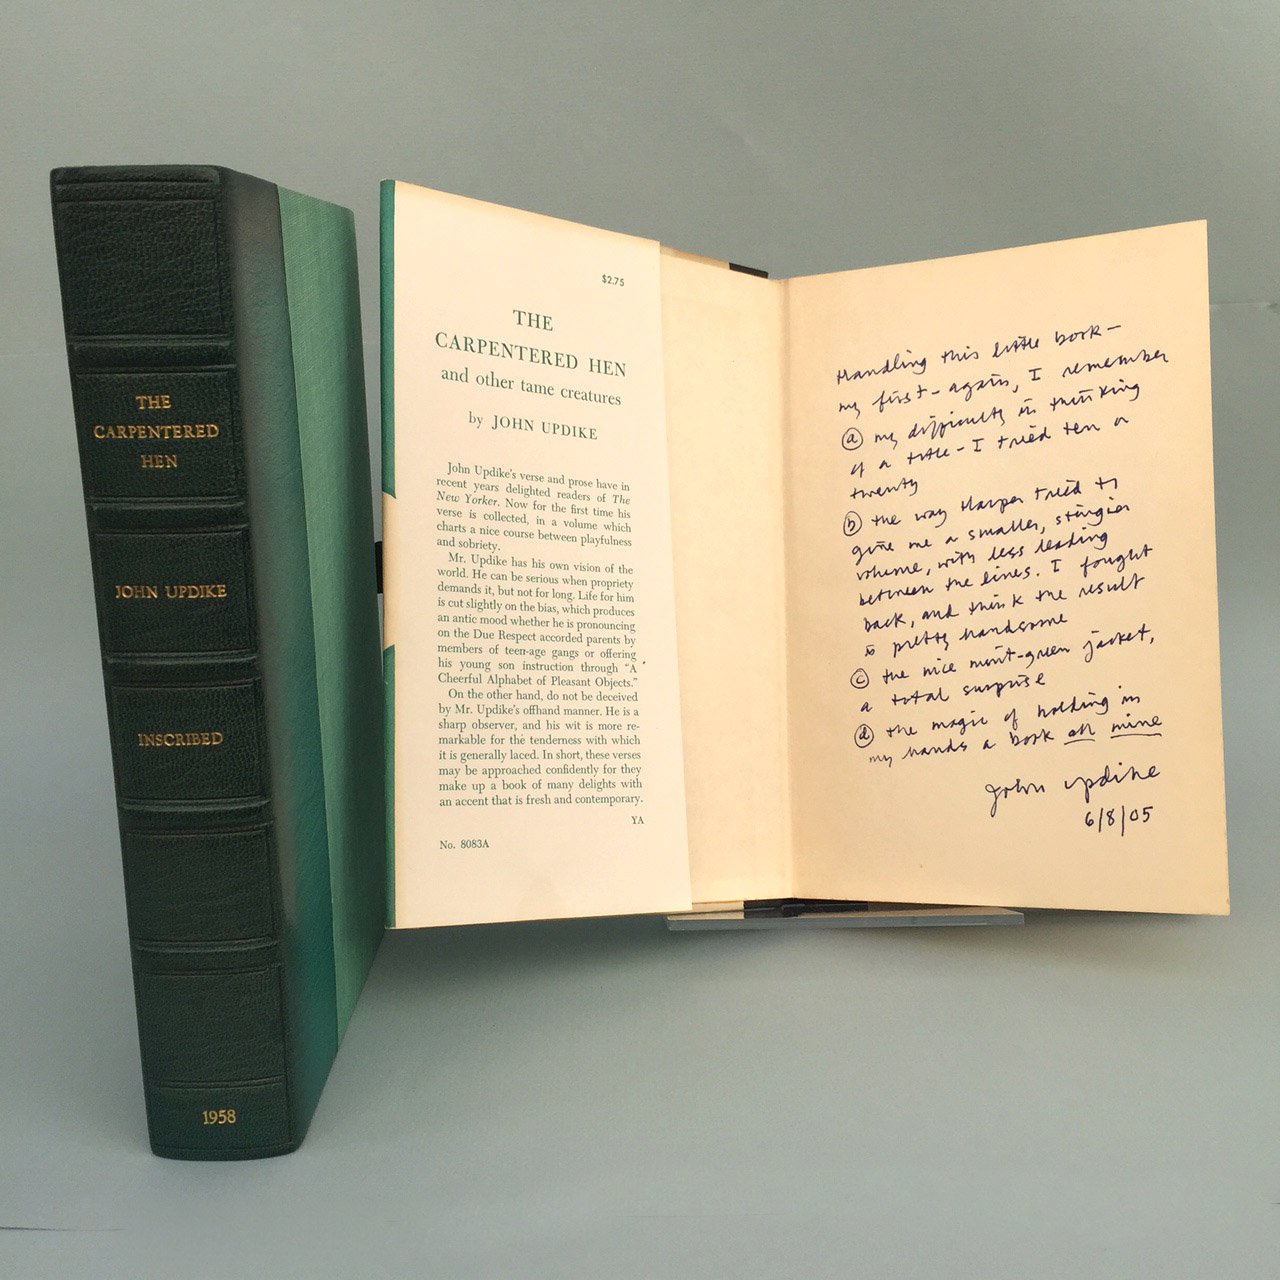 THE
CARPENTERED
HEN
JOHN UPDIKE
INSCRIBED
1958
$2.75
THE
CARPENTERED HEN
and other tame creatures
by JOHN UPDIKE
John Updike's verse and prose have in
recent years delighted readers of The
New Yorker. Now for the first time his
verse is collected, in a volume which
charts a nice course between playfulness
and sobriety.
Mr. Updike has his own vision of the
world. He can be serious when propriety
demands it, but not for long. Life for him
is cut slightly on the bias, which produces
an antic mood whether he is pronouncing
on the Due Respect accorded parents by
members of teen-age gangs or offering
his young son instruction through "A
Cheerful Alphabet of Pleasant Objects."
On the other hand, do not be deceived
by Mr. Updike's offhand manner. He is a
sharp observer, and his wit is more re-
markable for the tenderness with which
it is generally laced. In short, these verses
may be approached confidently for they
make up a book of many delights with
an accent that is fresh and contemporary.
YA
No. 8083A
Handling this little book—
my first—again, I remember
ⓐ my difficulty in thinking
of a title—I tried ten or
twenty
ⓑ the way Harper tried to
give me a smaller, stingier
volume, with less leading
between the lines. I fought
back, and think the result
is pretty handsome
ⓒ the nice mint-green jacket,
a total surprise
ⓓ the magic of holding in
my hands a book all mine
John Updike
6/8/05